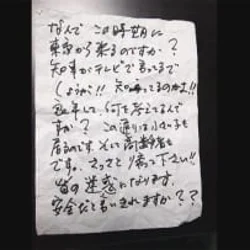 なんで この時期に
東京から来るのですか？
知事がテレビで言ってるで
しょうが!! 知ってるのかよ!!
良い年して、何を考えてるんで
すか？ この通りは小さい子も
居るのです そして高齢者も
です。さっさと帰って下さい!!
皆の迷惑になります。
安全だと言いきれますか？？